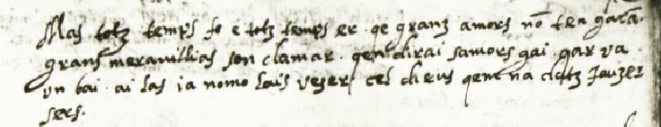 Mas totz temps fo e totz temps er. qe granz amors nō ten garā.
granz meravillias son clamar. gen dirai samors gai. qar va
un bai. ai las ia nomo lais vezer cel dieus qem na clotz jauzer
sers.